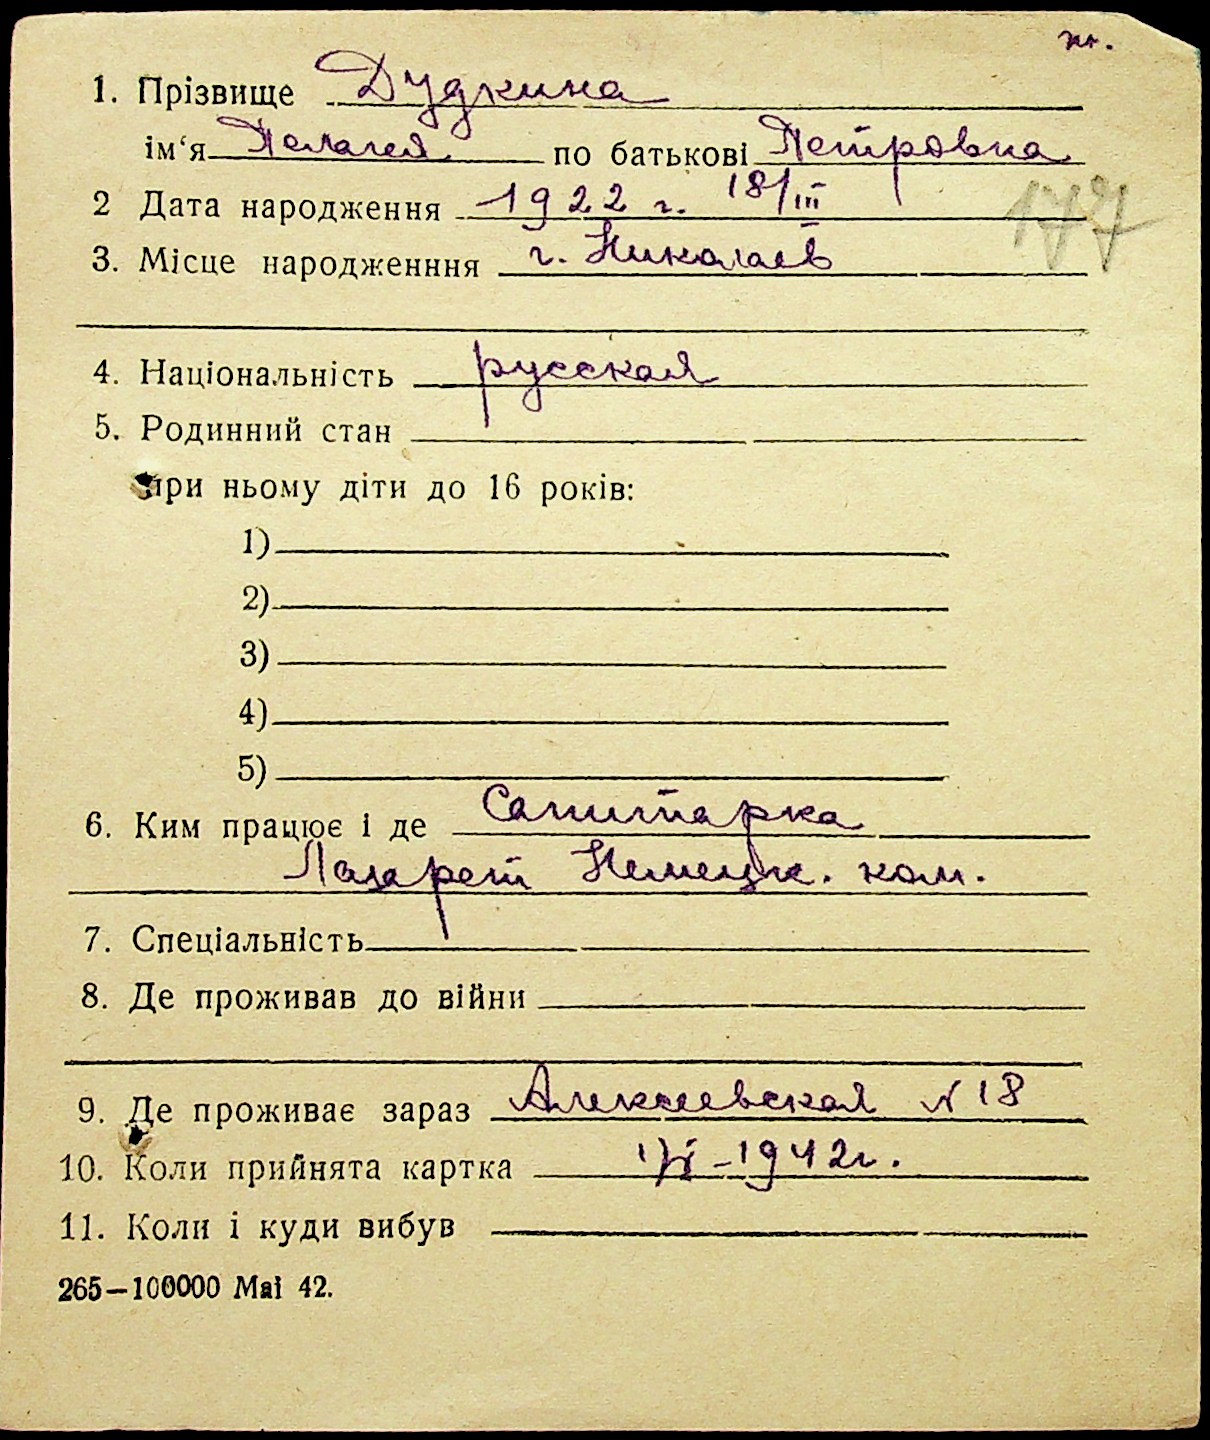 1. Прізвище Дудкина
ім‘я Пелагея по батькові Петровна
2 Дата народження 1922 г. 18/III
177
3. Місце народженння г. Николаев
4. Національність русская
5. Родинний стан
при ньому діти до 16 років:
1)
2)
3)
4)
5)
6. Ким працює і де Санитарка
Лазарет Немецк. ком.
7. Спеціальність
8. Де проживав до війни
9. Де проживає зараз Алексеевская № 18
10. Коли прийнята картка 1942г.
11. Коли і куди вибув
265—100000 Маі 42.